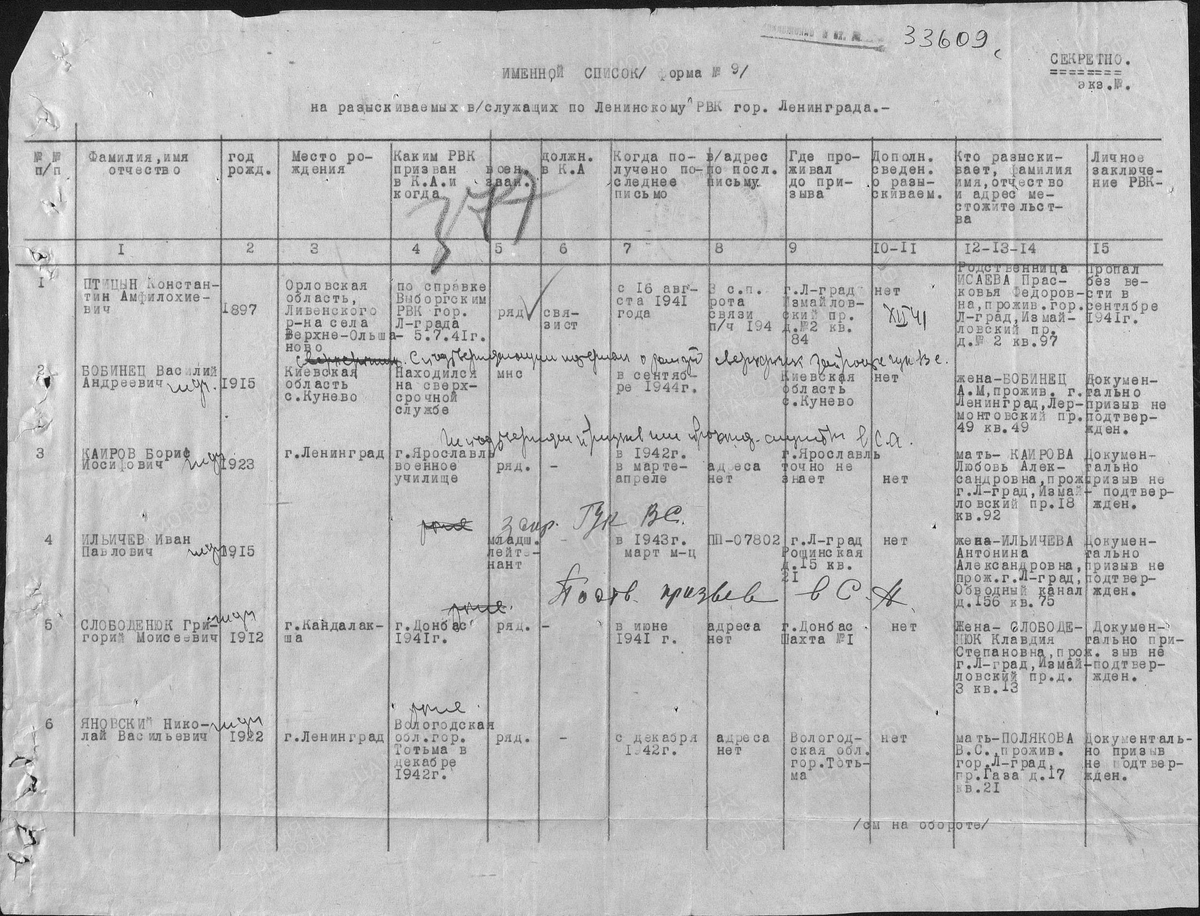 33609
СЕКРЕТНО.
экз.№.
ИМЕННОЙ СПИСОК/ форма № 9/
на разыскиваемых в/служащих по Ленинскому РВК гор. Ленинграда.-
№ № п/п
Фамилия,имя отчество
год рожд.
Место рождения
Каким РВК призван в К.А.и когда
воен. зван.
должн. в К.А
Когда получено последнее письмо
в/адрес по посл. письму
Где проживал до призыва
Дополн. сведен. о разыскиваем.
Кто разыскивает, фамилия имя,отчество и адрес местожительства
Личное заключение РВК-
1 2 3 4 5 6 7 8 9 10-11 12-13-14 15
377
1
ПТИЦЫН Констан-
тин Амфилохие-
вич
1897
Орловская
область,
Ливенского
р-на села
Верхне-Ольша-
ново
по справке
Выборгским
РВК гор.
Л-града
5.7.41г.
ряд.
свя-
зист
с 16 авг-
ста 1941
года
3 с.п.
рота
связи
п/ч 194
г.Л-град
Измайлов-
ский пр.
д.№2 кв.
84
нет
XII 41
Родственница
ИСАЕВА Прас-
ковья Федоров-
на,прожив.гор.
Л-град,Измай-
ловский пр.
д.№ 2 кв.97
Пропал
без ве-
сти в
сентябре
1941г.
2
БОБИНЕЦ Василий
Андреевич
1915
Киевская
область
с.Кунево
Находился
на сверх-
срочной
службе
мнс
в сентяб-
ре 1944г.
Киевская
область
с.Кунево
нет
жена-БОБИНЕЦ
А.М,прожив. г.
Ленинград,Лер-
монтовский пр.
49 кв.49
Докумен-
тально
призыв не
подтвер-
жден.
3
КАИРОВ Борис
Иосифович
1923
г.Ленинград
г.Ярославль
военное
училище
ряд.
-
в 1942г.
в марте-
апреле
адреса
нет
г.Ярославль
точно не
знает
нет
мать- КАИРОВА
Любовь Алек-
сандровна,прож
г.Л-град,Измай-
ловский пр.18
кв.92
Докумен-
тально
призыв не
подтвер-
жден.
Запр. ГУК ВС.
4
ИЛЬИЧЕВ Иван
Павлович
1915
младш.
лейте-
нант
в 1943г.
март м-ц
ПП-07802
г.Л-град
Рощинская
д.15 кв.
21
нет
жена-ИЛЬИЧЕВА
Антонина
Александровна,
прож.г.Л-град,
Обводный канал
д.156 кв.75
Докумен-
тально
призыв не
подтвер-
жден.
призвев в С.А.
5
СЛОБОДЕНЮК Гри-
горий Моисеевич
1912
г.Кандалак-
ша
г.Донбас
1941г.
ряд.
-
в июне
1941 г.
адреса
нет
г.Донбас
Шахта №1
нет
Жена- СЛОБОДЕ-
НЮК Клавдия
Степановна,прож.
г.Л-град,Измай-
ловский пр.д.
3 кв.13
Докумен-
тально при-
зыв не
подтвер-
жден.
6
ЯНОВСКИЙ Нико-
лай Васильевич
1922
г.Ленинград
Вологодская
обл.гор.
Тотьма в
декабре
1942г.
ряд.
-
с декабря
1942г.
адреса
нет
Вологод-
ская обл.
гор.Тоть-
ма
нет
мать-ПОЛЯКОВА
В.С.,прожив.
гор.Л-град,
пр.Газа д.17
кв.21
Документаль-
но призыв
не подтвер-
жден.
/см на обороте/